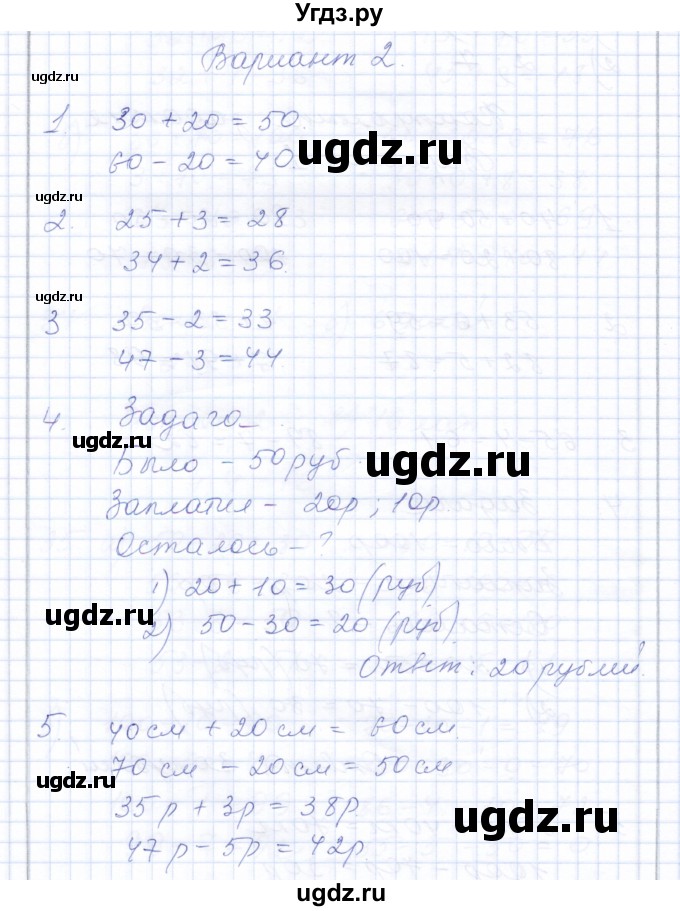 Угдз.ру
Вариант 2.
ugdz.ru
1. 30 + 20 = 50.
60 - 20 = 40.
ugdz.ru
ugdz.ru
2. 25 + 3 = 28
34 + 2 = 36.
ugdz.ru
3 35 - 2 = 33
47 - 3 = 44
4. Задача
ugdz.ru
Было - 50 руб
ugdz.ru
Заплатил - 20р ; 10р.
Осталось - ?
1) 20 + 10 = 30 (руб)
ugdz.ru
2) 50 - 30 = 20 (руб).
Ответ: 20 рублей.
5. 40см + 20см = 60см.
70см - 20см = 50см
ugdz.ru
35р + 3р = 38р.
ugdz.ru
47р - 5р = 42р
ugdz.ru